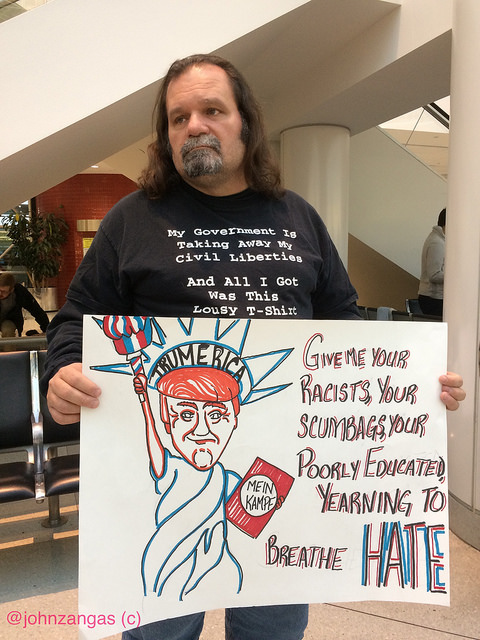 My Government Is
Taking Away My
Civil Liberties
And All I Got
Was This
Lousy T-Shirt
TRUMERICA
MEIN
KAMPF
GIVE ME YOUR
RACISTS, YOUR
SCUMBAGS, YOUR
POORLY EDUCATED,
YEARNING TO
BREATHE HATE
@johnzangas (c)